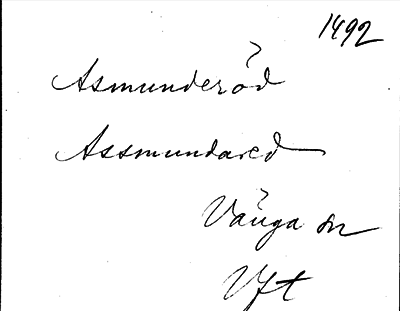 1492
Asmunderöd
Assmundared
Vånga sn
Vft